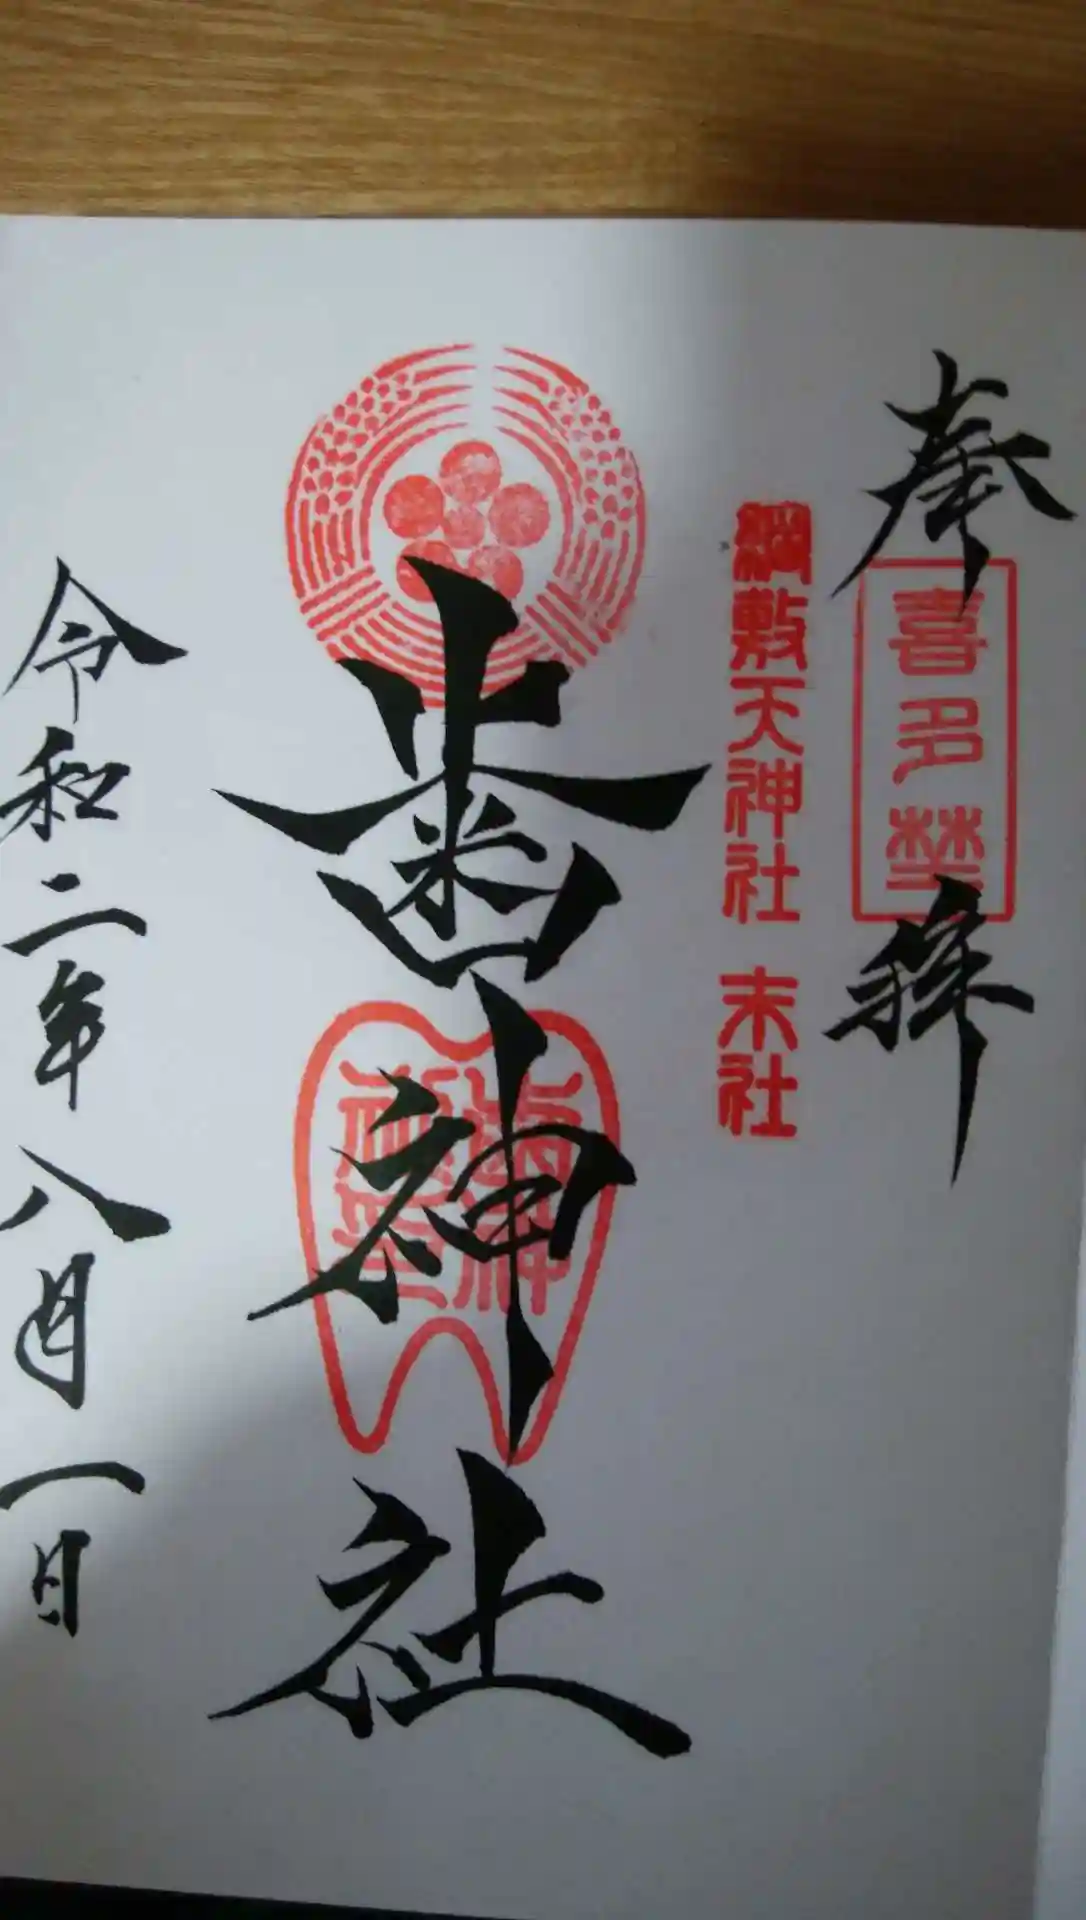 奉拝
喜多埜
綱敷天神社 末社
歯神社
歯神
令和二年八月一日